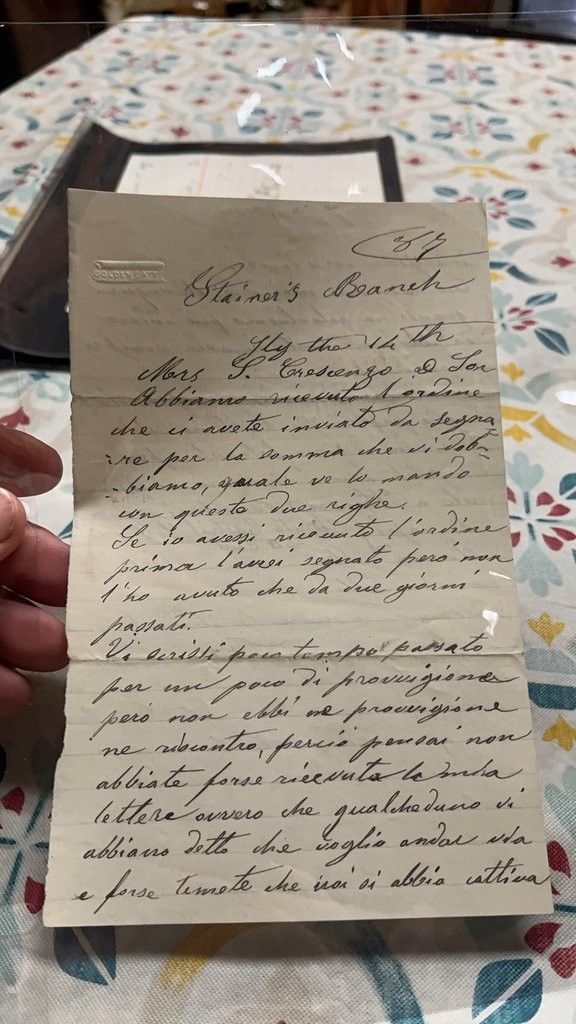 GOLDEN GATE
87
Stainer's Ranch
Jly the 14 th
Mrs S. Crescenzo & Son
Abbiamo ricevuto l'ordine
che ci avete inviato da segna
re per la somma che vi dob-
biamo, quale ve lo mando
con queste due righe.
Se io avessi ricevuto l'ordine
prima l'avrei segnato però non
l'ho avuto che da due giorni
passati.
Vi scrissi poco tempo passato
per un poco di provvigione
però non ebbi ne provvigione
ne riscontro, perciò pensai non
abbiate forse ricevuto la mia
lettere ovvero che qualcheduno vi
abbiano detto che voglio andar via
e forse temete che noi si abbia cattiva